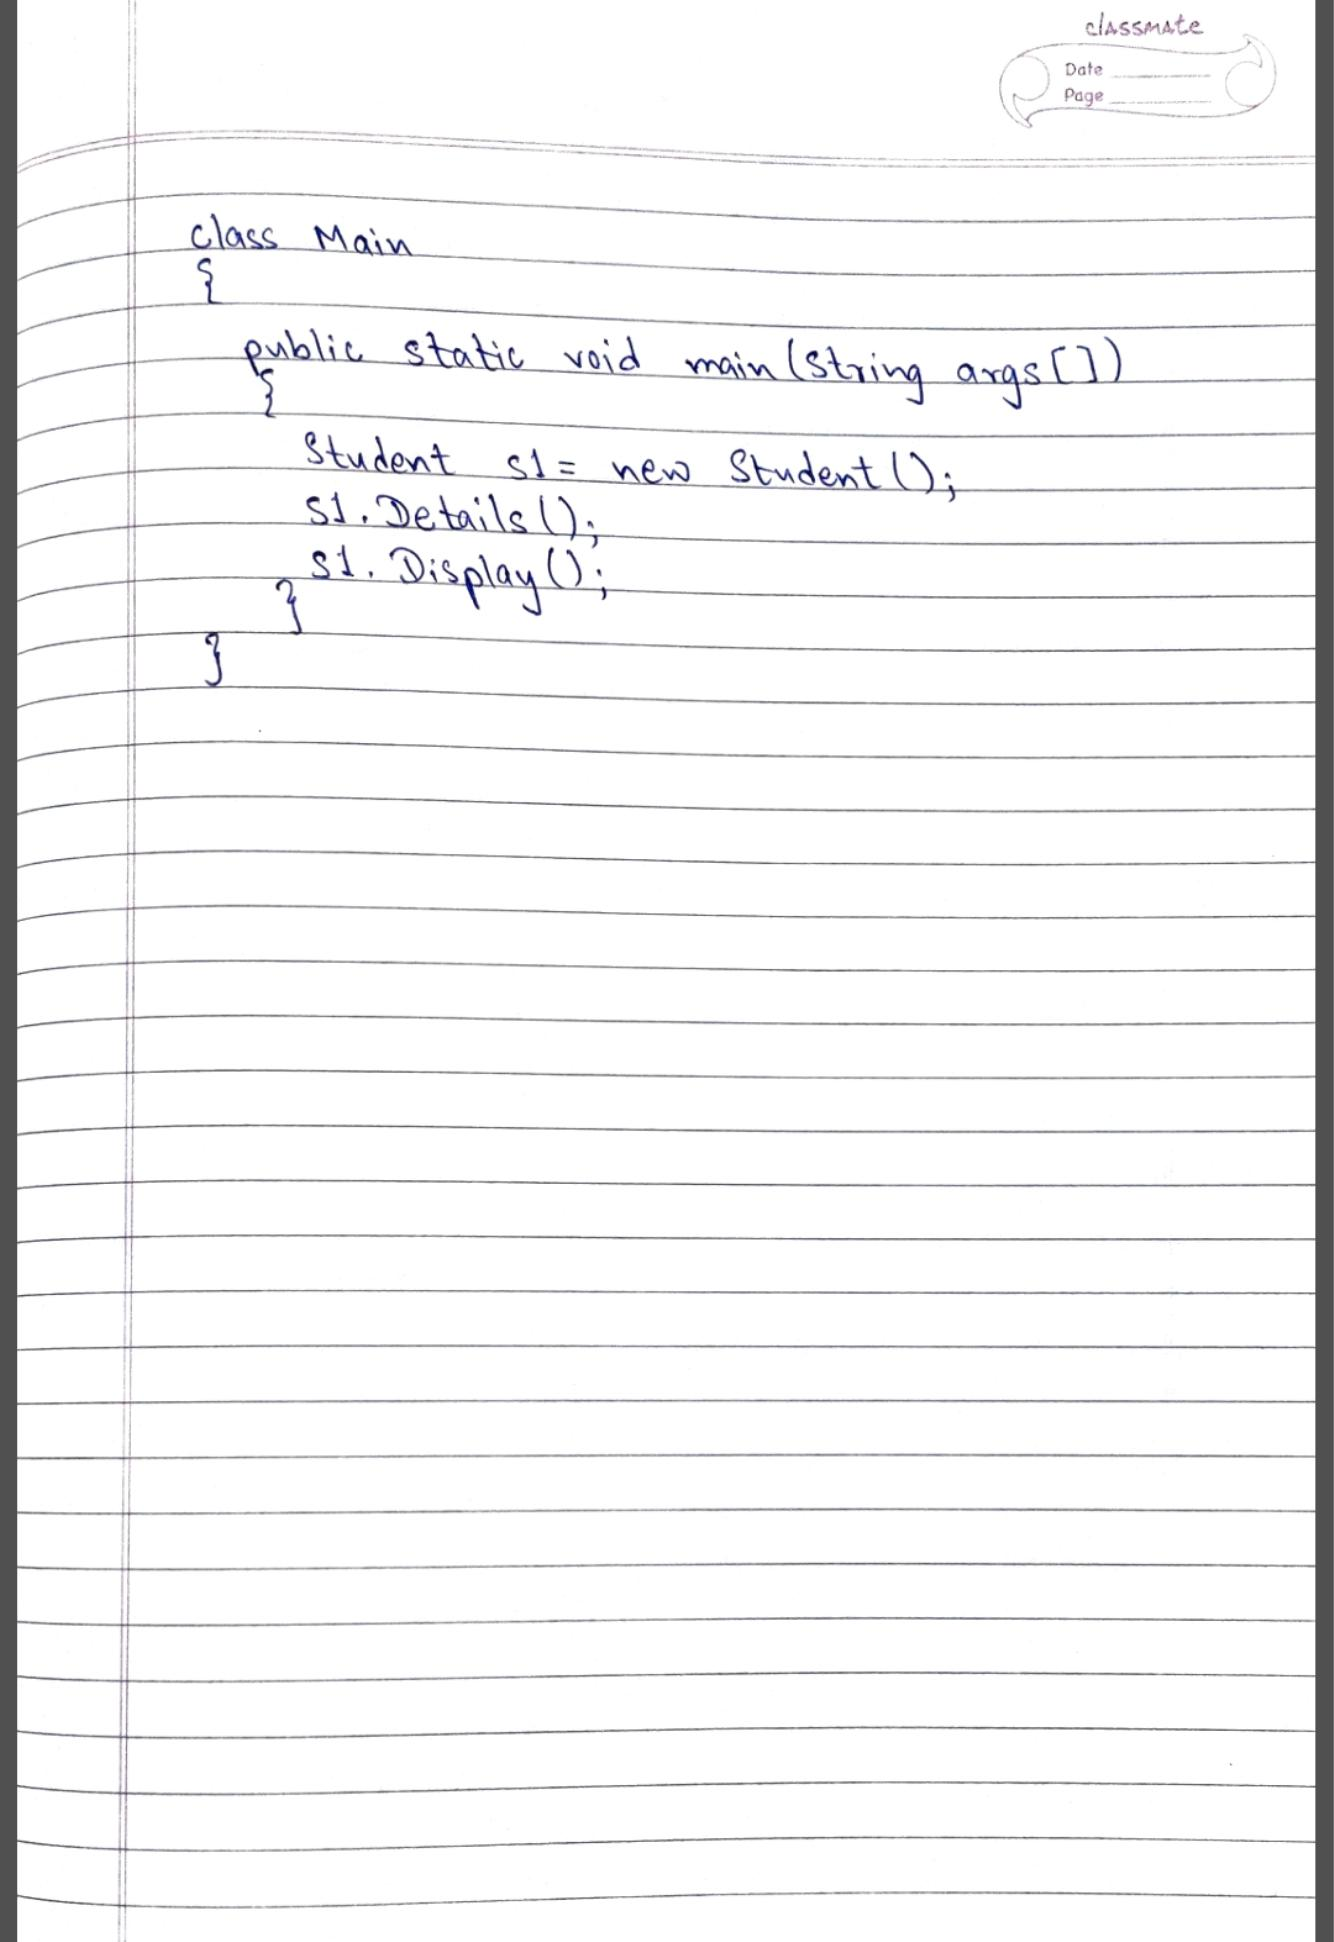 classmate
Date
Page
class Main
{
public static void main(String args[])
{
Student s1 = new Student();
s1.Details();
s1.Display();
}
}